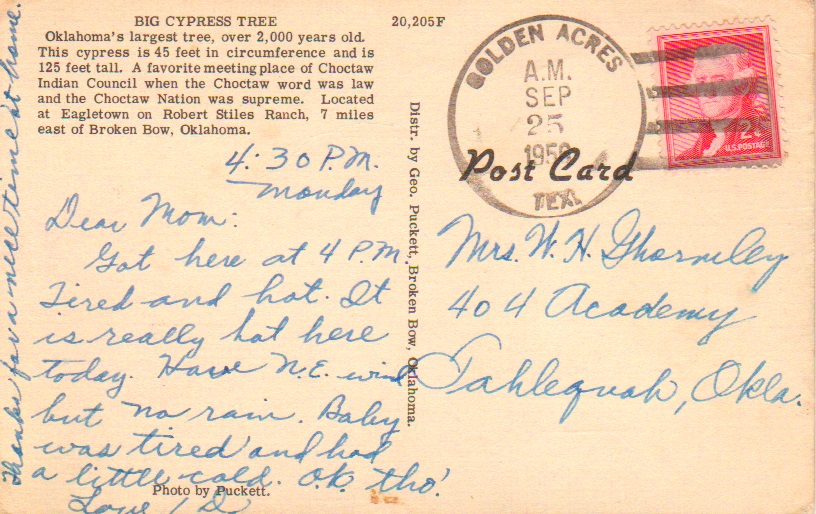 BIG CYPRESS TREE
Oklahoma's largest tree, over 2,000 years old.
This cypress is 45 feet in circumference and is
125 feet tall. A favorite meeting place of Choctaw
Indian Council when the Choctaw word was law
and the Choctaw Nation was supreme. Located
at Eagletown on Robert Stiles Ranch, 7 miles
east of Broken Bow, Oklahoma.
20,205F
GOLDEN ACRES
A.M.
SEP
25
TEX.
2¢
U.S. POSTAGE
Post Card
Distr. by Geo. Puckett, Broken Bow, Oklahoma.
4:30 P.M.
Monday
Dear Mom:
Got here at 4 P.M.
Tired and hot. It
is really hot here
today. Have N.E. wind
but no rain. Baby
was tired and had
a little cold. O.K. tho!
Love, D
Photo by Puckett.
Thanks for a nice time at home.
Mrs. W. H. Ghormley
404 Academy
Tahlequah, Okla.